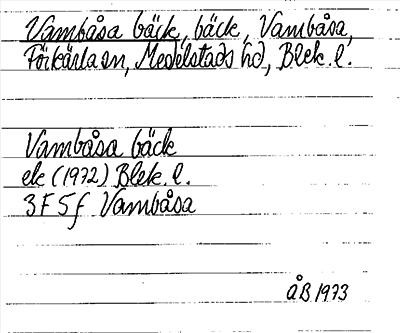 Vambåsa bäck, bäck, Vambåsa,
Förkärla sn, Medelstads hd, Blek. l.
Vambåsa bäck
ek (1972) Blek. l.
3F 5f Vambåsa
ÅB 1973